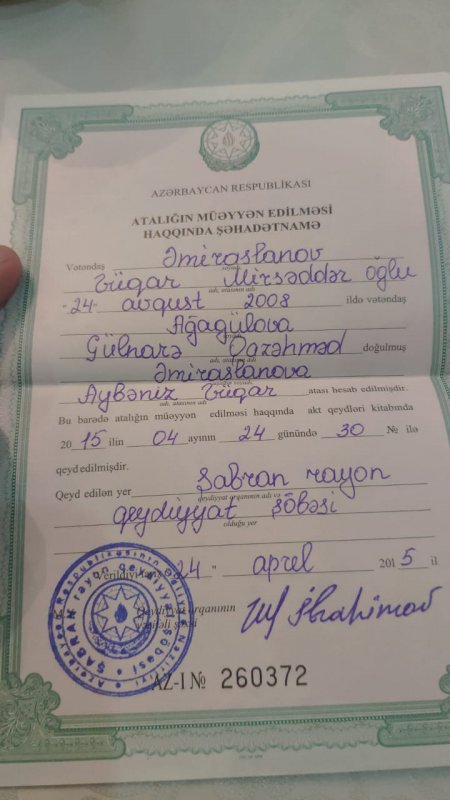 AZƏRBAYCAN RESPUBLİKASI
ATALIĞIN MÜƏYYƏN EDİLMƏSİ
HAQQINDA ŞƏHADƏTNAMƏ
Vətəndaş Əmiraslanov
soyadı
Vüqar Mirsəddər oğlu
adı, atasının adı
"24" avqust 2008 ildə vətəndaş
Ağagülova
Gülnarə Qazəhməd doğulmuş
adı, atasının adı
Əmiraslanova
Aybəniz Vüqar atası hesab edilmişdir.
adı, atasının adı
Bu barədə atalığın müəyyən edilməsi haqqında akt qeydləri kitabında
2015 ilin 04 ayının 24 günündə 30 № ilə
qeyd edilmişdir.
Qeyd edilən yer Şabran rayon
qeydiyyat orqanının adı və
qeydiyyat şöbəsi
olduğu yer
Verildiyi 24 " aprel 2015 il
Qeydiyyat orqanının
vəzifəli şəxsi
İbrahimov
AZ-I № 260372